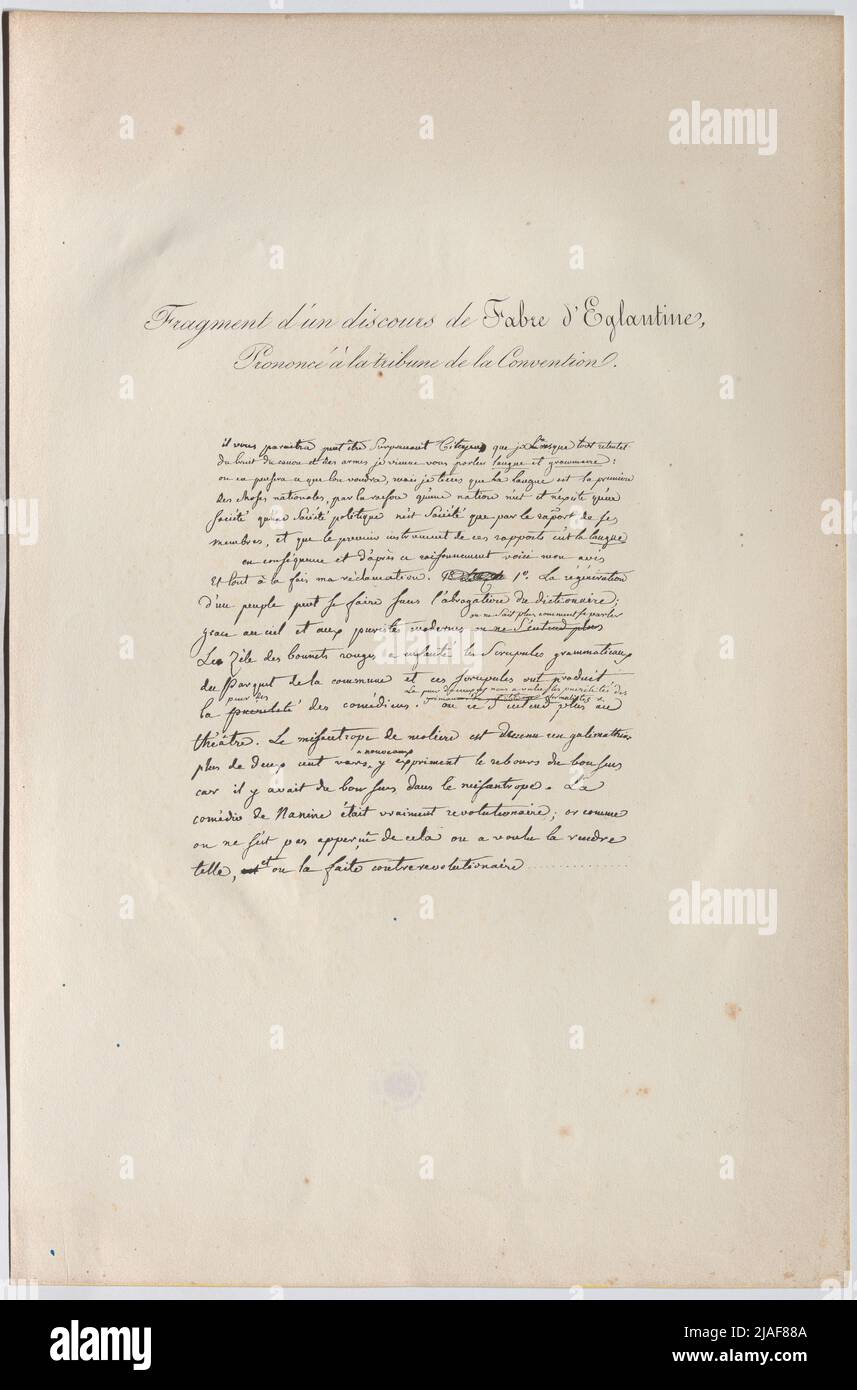 Fragment d'un discours de Fabre d'Eglantine,
Prononcé à la tribune de la Convention.
il vous paroitra peut être surprenant Citoyens que je lorsque tout retentit
du bruit du canon et des armes je vienne vous parler langue et grammaire :
on en pensera ce que l'on voudra, mais je tiens que la langue est la première
des choses nationales, par la raison qu'une nation n'est et n'existe qu'en
société qu'une société politique n'est société que par le raport de ses
membres, et que le premier instrument de ces rapports c'est la langue
en conséquence et d'après ce raisonnement voici mon avis
Et tout à la fois ma réclamation. 1º. La régénération
d'un peuple peut se faire sans l'abrogation du dictionnaire ;
on ne sait plus comment se parler
grace au ciel et aux puristes modernes on ne s'entend plus
Le Zèle des bonnets rouges a enfanté les scrupules grammaticaux
du Parquet de la commune et ces scrupules ont produit
la peur d'envoyer nous a valu les puérilités des
peur des
la puérilité des comédiens. on ne s'entend plus au
théâtre. Le misantrope de moliere est devenu un galimathias
nouveaux
plus de deux cent vers y expriment le rebours du bon sens
car il y avait du bon sens dans le misantrope. La
comédie de Nanine était vraiment revolutionaire ; or comme
on ne s'est pas apperçu de cela on a voulu la rendre
telle, et on la faite contrerevolutionaire ..............
alamy
alamy
alamy
a
Image ID: 2JAF88A
www.alamy.com